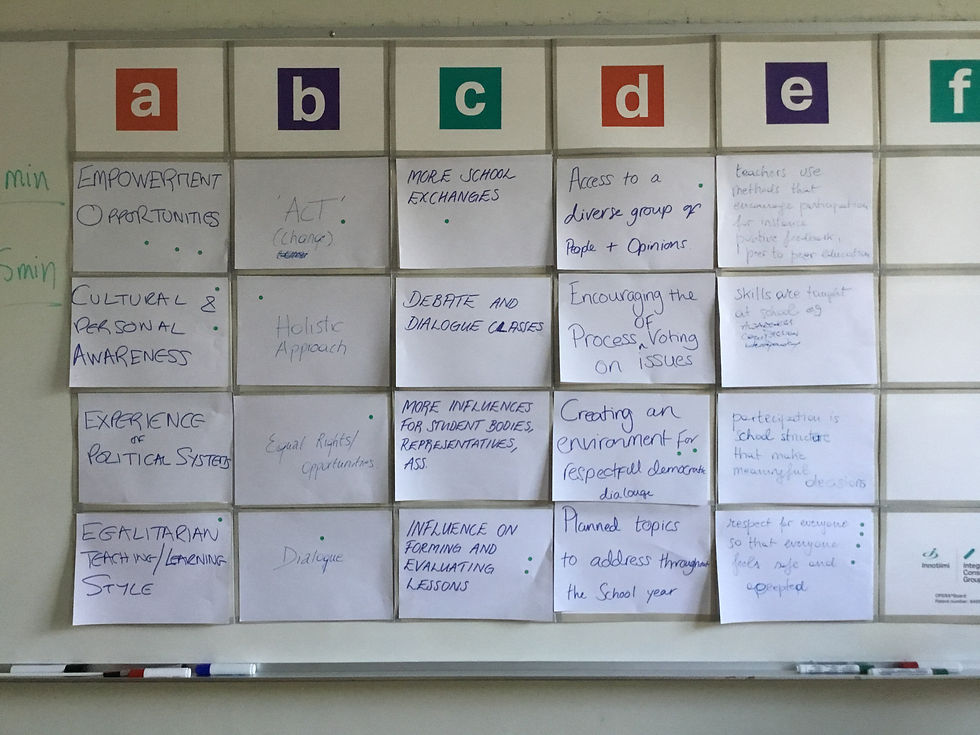 a
b
c
d
e
f
min
5min
EMPOWERMENT
OPPORTUNITIES
'ACT'
(change)
MORE SCHOOL
EXCHANGES
Access to a
diverse group of
People + Opinions
teachers use
methods that
encourage participation
for instance
positive feedback,
peer to peer education
CULTURAL &
PERSONAL
AWARENESS
Holistic
Approach
DEBATE AND
DIALOGUE CLASSES
Encouraging the
Process OF Voting
on issues
skills are taught
at school eg
EXPERIENCE
OF
POLITICAL SYSTEMS
Equal Rights/
opportunities
MORE INFLUENCES
FOR STUDENT BODIES,
REPRESENTATIVES,
ASS.
Creating an
environment for
respectfull democratic
dialouge
partecipation is
school structure
that make
meaningful
decisions
EGALITARIAN
TEACHING/LEARNING
STYLE
Dialogue
INFLUENCE ON
FORMING AND
EVALUATING
LESSONS
Planned topics
to address throughout
the School year
respect for everyone
so that everyone
feels safe and
accepted
Innotiimi
Integ
Cons
Group
OPERA®Board
Patent number: